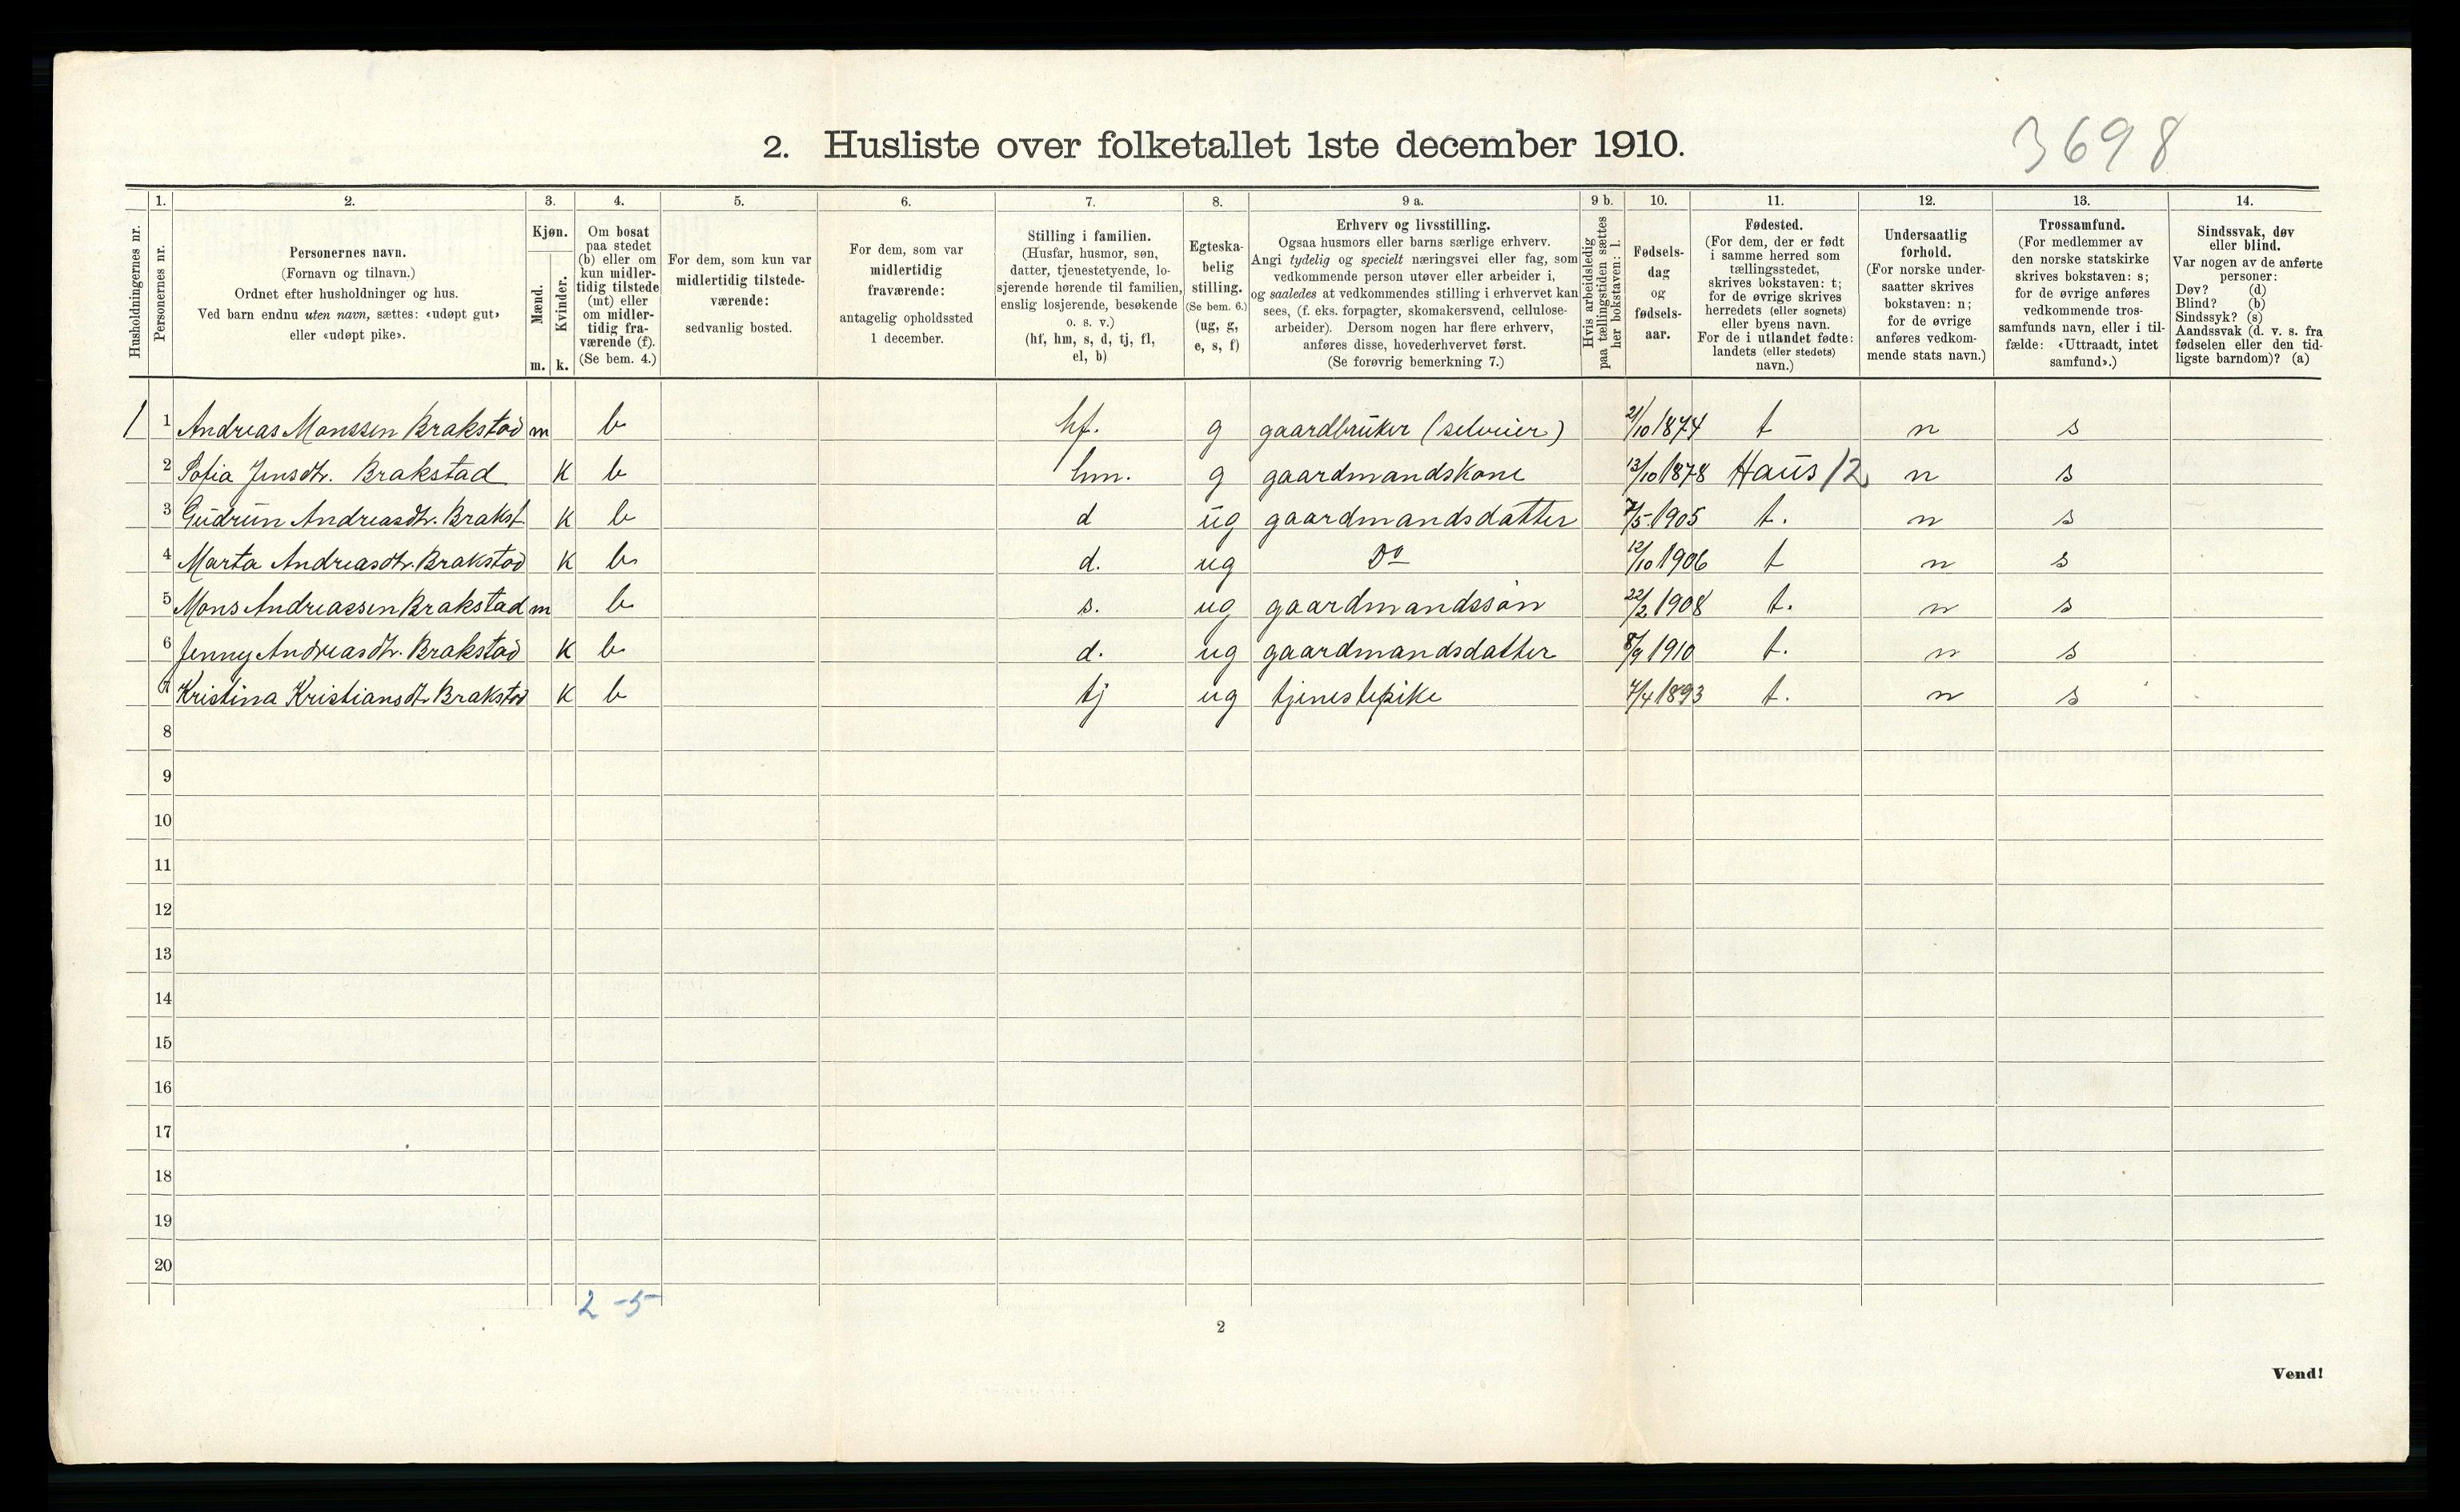 3698
2. Husliste over folketallet 1ste december 1910.
Husholdningernes nr.
1.
Personernes nr.
2.
Personernes navn.
(Fornavn og tilnavn.)
Ordnet efter husholdninger og hus.
Ved barn endnu uten navn, sættes: «udøpt gut»
eller «udøpt pike».
3.
Kjøn.
Mænd.
Kvinder.
m. k.
4.
Om bosat
paa stedet
(b) eller om
kun midler-
tidig tilstede
(mt) eller
om midler-
tidig fra-
værende (f).
(Se bem. 4.)
5.
For dem, som kun var
midlertidig tilstede-
værende:
sedvanlig bosted.
6.
For dem, som var
midlertidig
fraværende:
antagelig opholdssted
1 december.
7.
Stilling i familien.
(Husfar, husmor, søn,
datter, tjenestetyende, lo-
sjerende hørende til familien,
enslig losjerende, besøkende
o. s. v.)
(hf, hm, s, d, tj, fl,
el, b)
8.
Egteska-
belig
stilling.
(Se bem. 6.)
(ug, g,
e, s, f)
9 a.
Erhverv og livsstilling.
Ogsaa husmors eller barns særlige erhverv.
Angi tydelig og specielt næringsvei eller fag, som
vedkommende person utøver eller arbeider i,
og saaledes at vedkommendes stilling i erhvervet kan
sees, (f. eks. forpagter, skomakersvend, cellulose-
arbeider). Dersom nogen har flere erhverv,
anføres disse, hovederhvervet først.
(Se forøvrig bemerkning 7.)
9 b.
Hvis arbeidsledig
paa tællingstiden sættes
her bokstaven: l.
10.
Fødsels-
dag
og
fødsels-
aar.
11.
Fødested.
(For dem, der er født
i samme herred som
tællingsstedet,
skrives bokstaven: t;
for de øvrige skrives
herredets (eller sognets)
eller byens navn.
For de i utlandet fødte:
landets (eller stedets)
navn.)
12.
Undersaatlig
forhold.
(For norske under-
saatter skrives
bokstaven: n;
for de øvrige
anføres vedkom-
mende stats navn.)
13.
Trossamfund.
(For medlemmer av
den norske statskirke
skrives bokstaven: s;
for de øvrige anføres
vedkommende tros-
samfunds navn, eller i til-
fælde: «Uttraadt, intet
samfund».)
14.
Sindssvak, døv
eller blind.
Var nogen av de anførte
personer:
Døv? (d)
Blind? (b)
Sindssyk? (s)
Aandssvak (d. v. s. fra
fødselen eller den tid-
ligste barndom)? (a)
1 1 Andreas Monssen Brakstad m b hf. g gaardbruker (selveier) 21/10 1874 t n s
2 Sofia Jensdtr. Brakstad k b hm. g gaardmandskone 13/10 1878 Haus 12 n s
3 Gudrun Andreasdtr. Brakst. k b d ug gaardmandsdatter 7/5 1905 t. n s
4 Marta Andreasdtr. Brakstad k b d. ug Do 12/10 1906 t n s
5 Mons Andreassen Brakstad m b s. ug gaardmandssøn 22/2 1908 t. n s
6 Jenny Andreasdtr. Brakstad k b d. ug gaardmandsdatter 8/9 1910 t. n s
7 Kristina Kristiansdt. Brakstad k b tj ug tjenestepike 7/4 1893 t. n s
8
9
10
11
12
13
14
15
16
17
18
19
20
2-5
2
Vend!